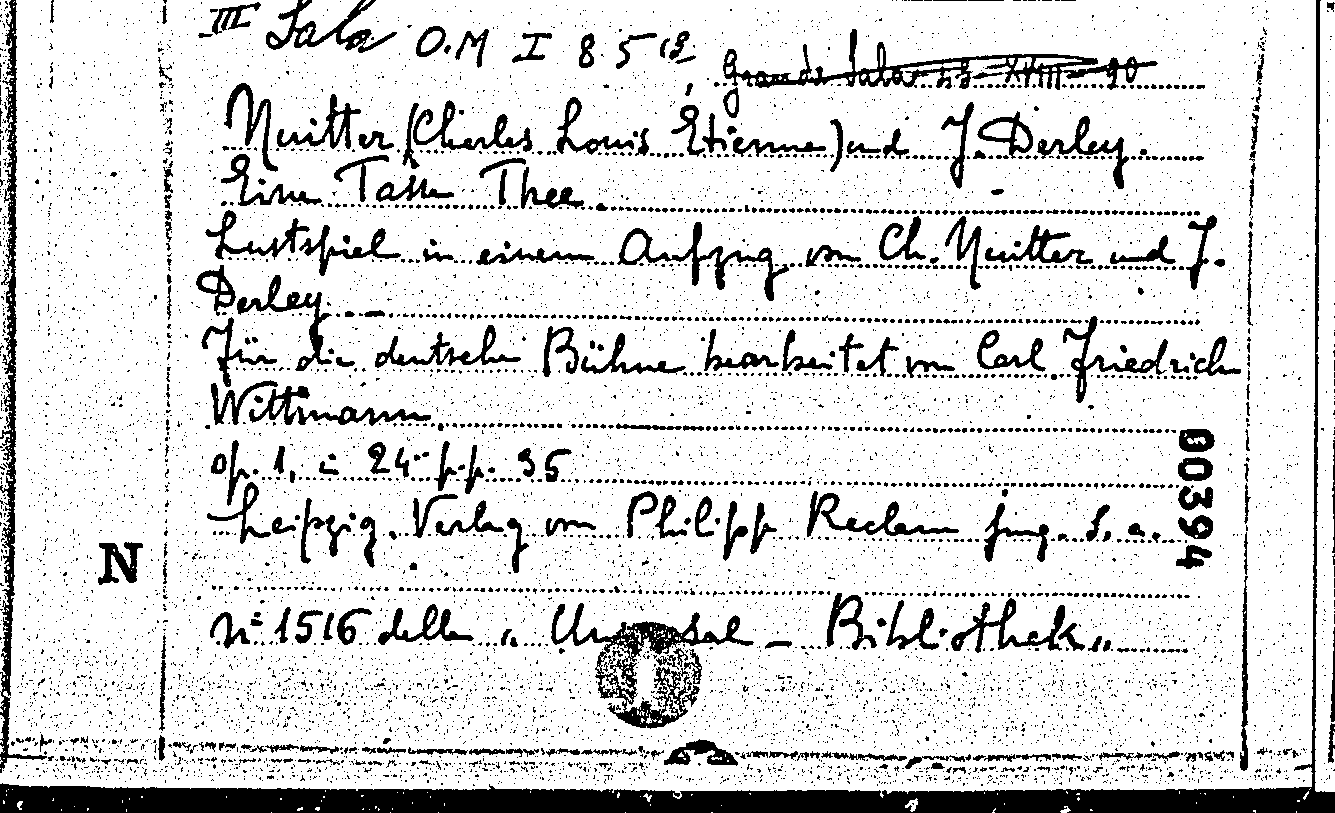 III Sala O.M I 85 19
Grande Sala 23-XVIII-90
Nuitter (Charles Louis Étienne) und J. Derley.
Eine Tasse Thee.
Lustspiel in einem Aufzug von Ch. Nuitter und J.
Derley. _
Für die deutsche Bühne bearbeitet von Carl Friedrich
Wittmann.
op. 1, in 24° p.p. 35
Leipzig. Verlag von Philipp Reclam jung. S. a.
N° 1516 della „ Un sal - Bibliothek „
N
00394